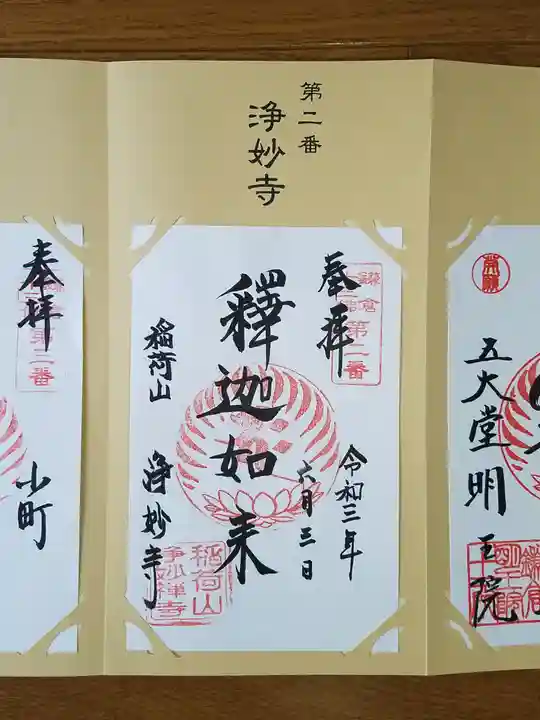 第二番
浄妙寺
奉拝
鎌倉
第二番
令和三年
六月三日
釋迦如来
稲荷山
浄妙寺
稲荷山
五大堂明王院
鎌倉
奉拝
第二番
小町